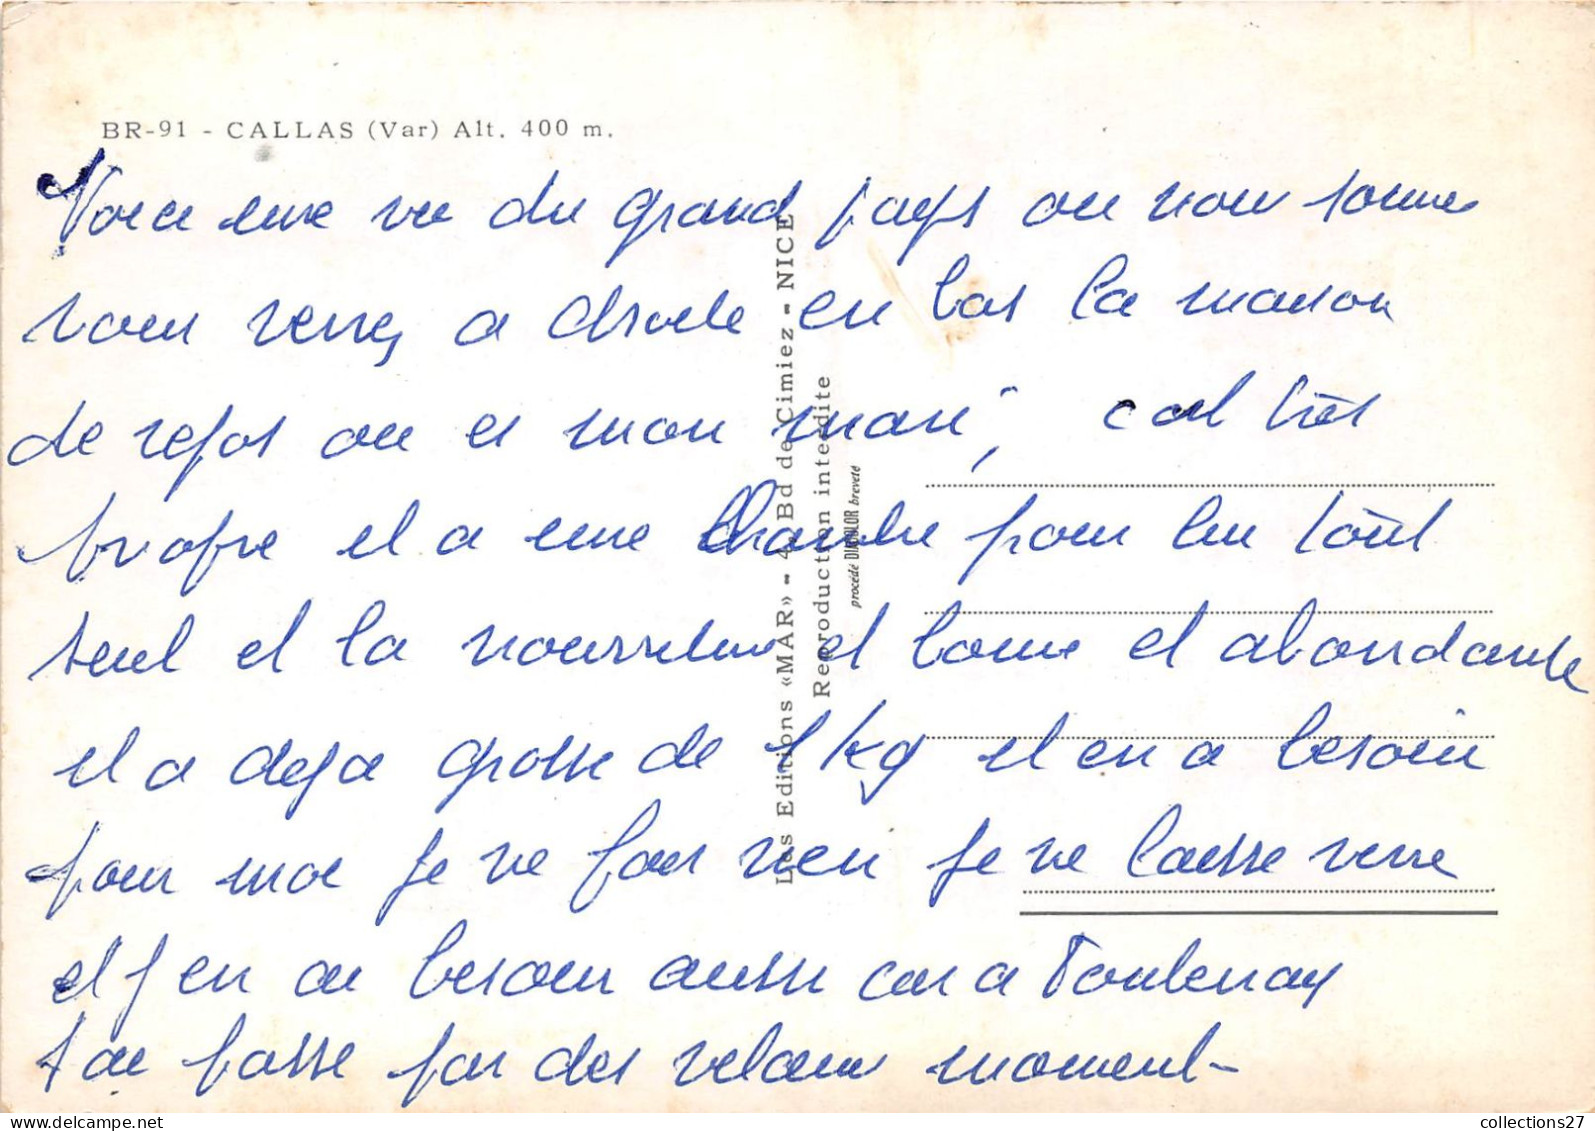 BR-91 - CALLAS (Var) Alt. 400 m.
Voici une vu du grand pays ou nou sommes
vous verrez a droite en bas la maison
de repos ou es mon mari, cest très
propre il a une chambre pour lui tout
seul et la nourriture et bonne et abondante
il a deja grosse de 1 kg il en a besoin
pour moi je ne fais rien je me laisse vivre
et j en ai besoin aussi car a
J ai passe par des moment -
Les Editions «MAR» - 4, Bd de Cimiez - NICE
Reproduction interdite
procédé DIACOLOR breveté
collections27